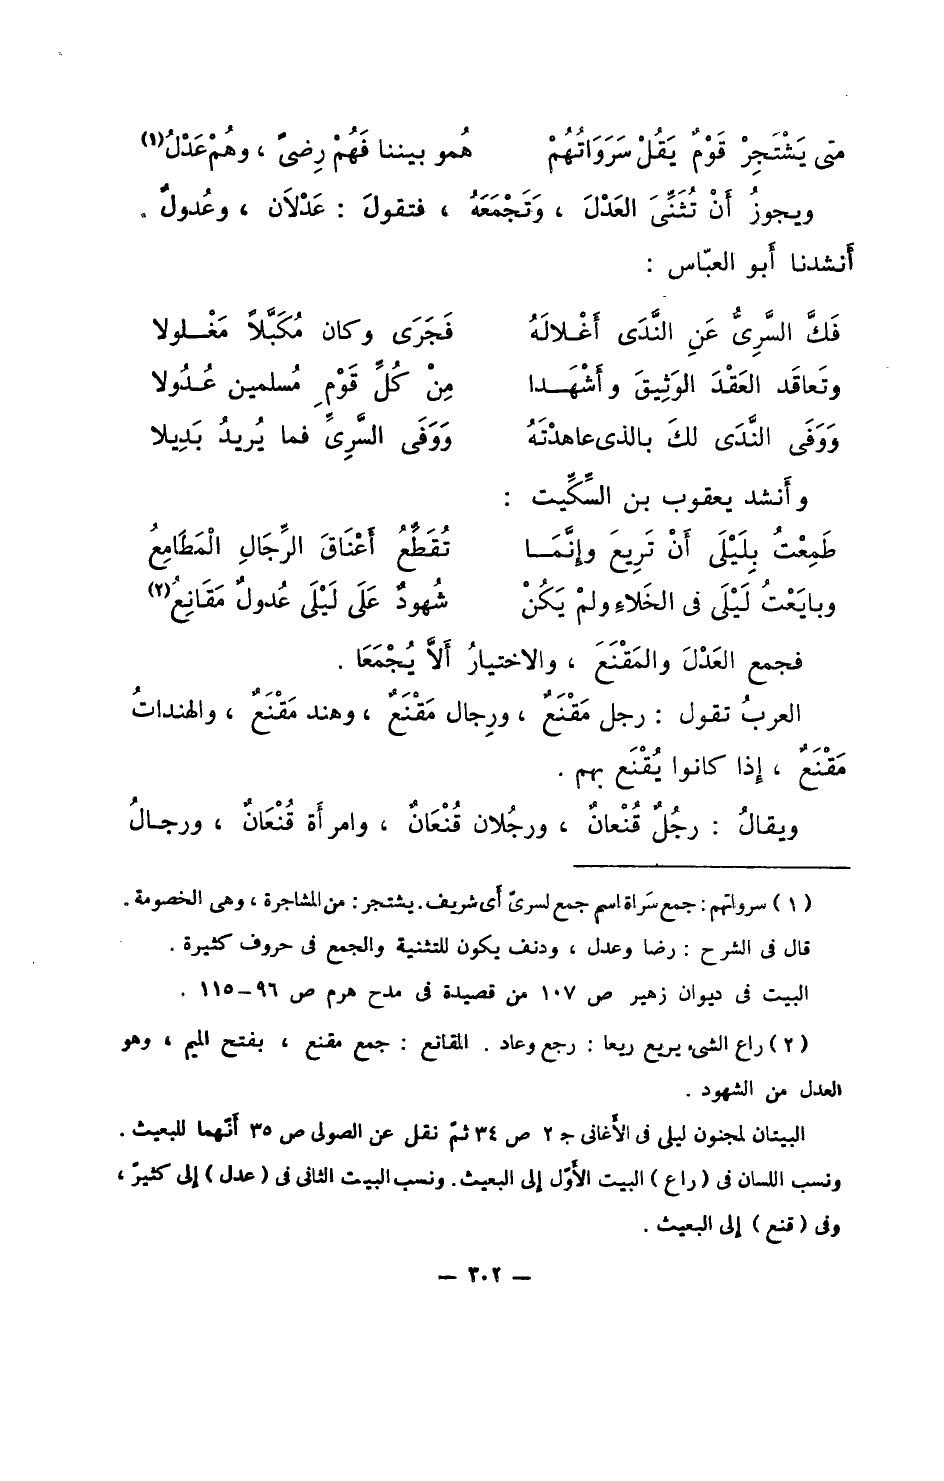 متى يَشْتَجِرْ قَوْمٌ يَقُلْ سَرَوَاتُهُمْ هُمو بيننا فَهُمْ رِضىً ، وهُمْ عَدْلُ(١)
ويجوزُ أَنْ تُثَنِّىَ العَدْلَ ، وَتَجْمَعَهُ ، فتقولَ : عَدْلاَن ، وعُدولٌ .
أَنشدنا أَبو العبّاس :
فَكَّ السَّرِىُّ عَنِ النَّدَى أَغْلالَهُ فَجَرَى وكان مُكَبَّلاً مَغْلولا
وتَعاقَد العَقْدَ الوَثِيقَ وأَشْهَدا مِنْ كُلِّ قَوْمٍ مُسلمين عُدُولا
وَوَفَى النَّدَى لكَ بالذى عاهدْتَهُ وَوَفَى السَّرِىُّ فما يُريدُ بَدِيلا
وأَنشد يعقوب بن السِّكِّيت :
طَمِعْتُ بِلَيْلَى أَنْ تَرِيعَ وإِنَّمَا تُقَطِّعُ أَعْنَاقَ الرِّجَالِ الْمَطَامِعُ
وبايَعْتُ لَيْلَى فى الخَلاءِ ولمْ يَكُنْ شُهودٌ عَلَى لَيْلَى عُدولٌ مَقَانِعُ(٢)
فجمع العَدْلَ والمَقْنَعَ ، والاختيارُ أَلاَّ يُجْمَعَا .
العربُ تقول : رجل مَقْنَعٌ ، ورجال مَقْنَعٌ ، وهند مَقْنَعٌ ، والهنداتُ
مَقْنَعٌ ، إِذا كانوا يُقْنَع بهم .
ويقالُ : رجُلٌ قُنْعانٌ ، ورجُلان قُنْعَانٌ ، وامرأَة قُنْعَانٌ ، ورجـالٌ
(١) سرواتهم : جمع سَراة اسم جمع لسرىّ أَى شريف . يشتجر : من المشاجرة ، وهى الخصومة .
قال فى الشرح : رضا وعدل ، ودنف يكون للتثنية والجمع فى حروف كثيرة .
البيت فى ديوان زهير ص ١٠٧ من قصيدة فى مدح هرم ص ٩٦–١١٥ .
(٢) راع الشىء يريع ريعا : رجع وعاد . المقانع : جمع مقنع ، بفتح الميم ، وهو
العدل من الشهود .
البيتان لمجنون ليلى فى الأَغانى جـ ٢ ص ٣٤ ثمّ نقل عن الصولى ص ٣٥ أَنّهما للبعيث .
ونسب اللسان فى (راع) البيت الأَوّل إِلى البعيث . ونسب البيت الثانى فى (عدل) إِلى كثيرّ ،
وفى (قنع) إِلى البعيث .
— ٣٠٢ —